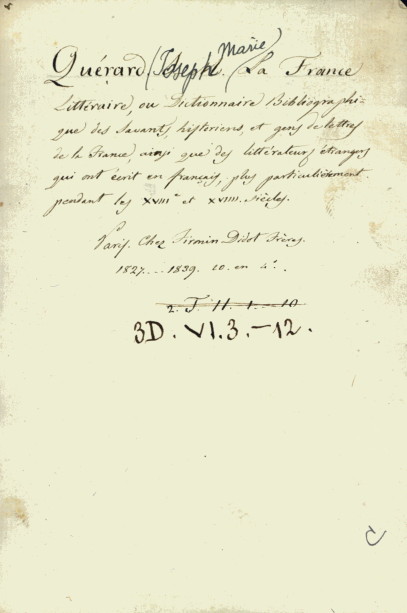 Quérard (Joseph Marie) La France
Littéraire, ou Dictionnaire Bibliographi-
que des Savants, historiens, et gens de lettres
de la France, ainsi que des littérateurs étrangers
qui ont écrit en français, plus particulièrement
pendant les XVIIIe et XVIIII. Siècles.
Paris. Chez Firmin Didot Frères.
1827. .. 1839. 10. en 4°. .
2. T. 11. 1. — 10
3D. VI. 3. — 12.
C